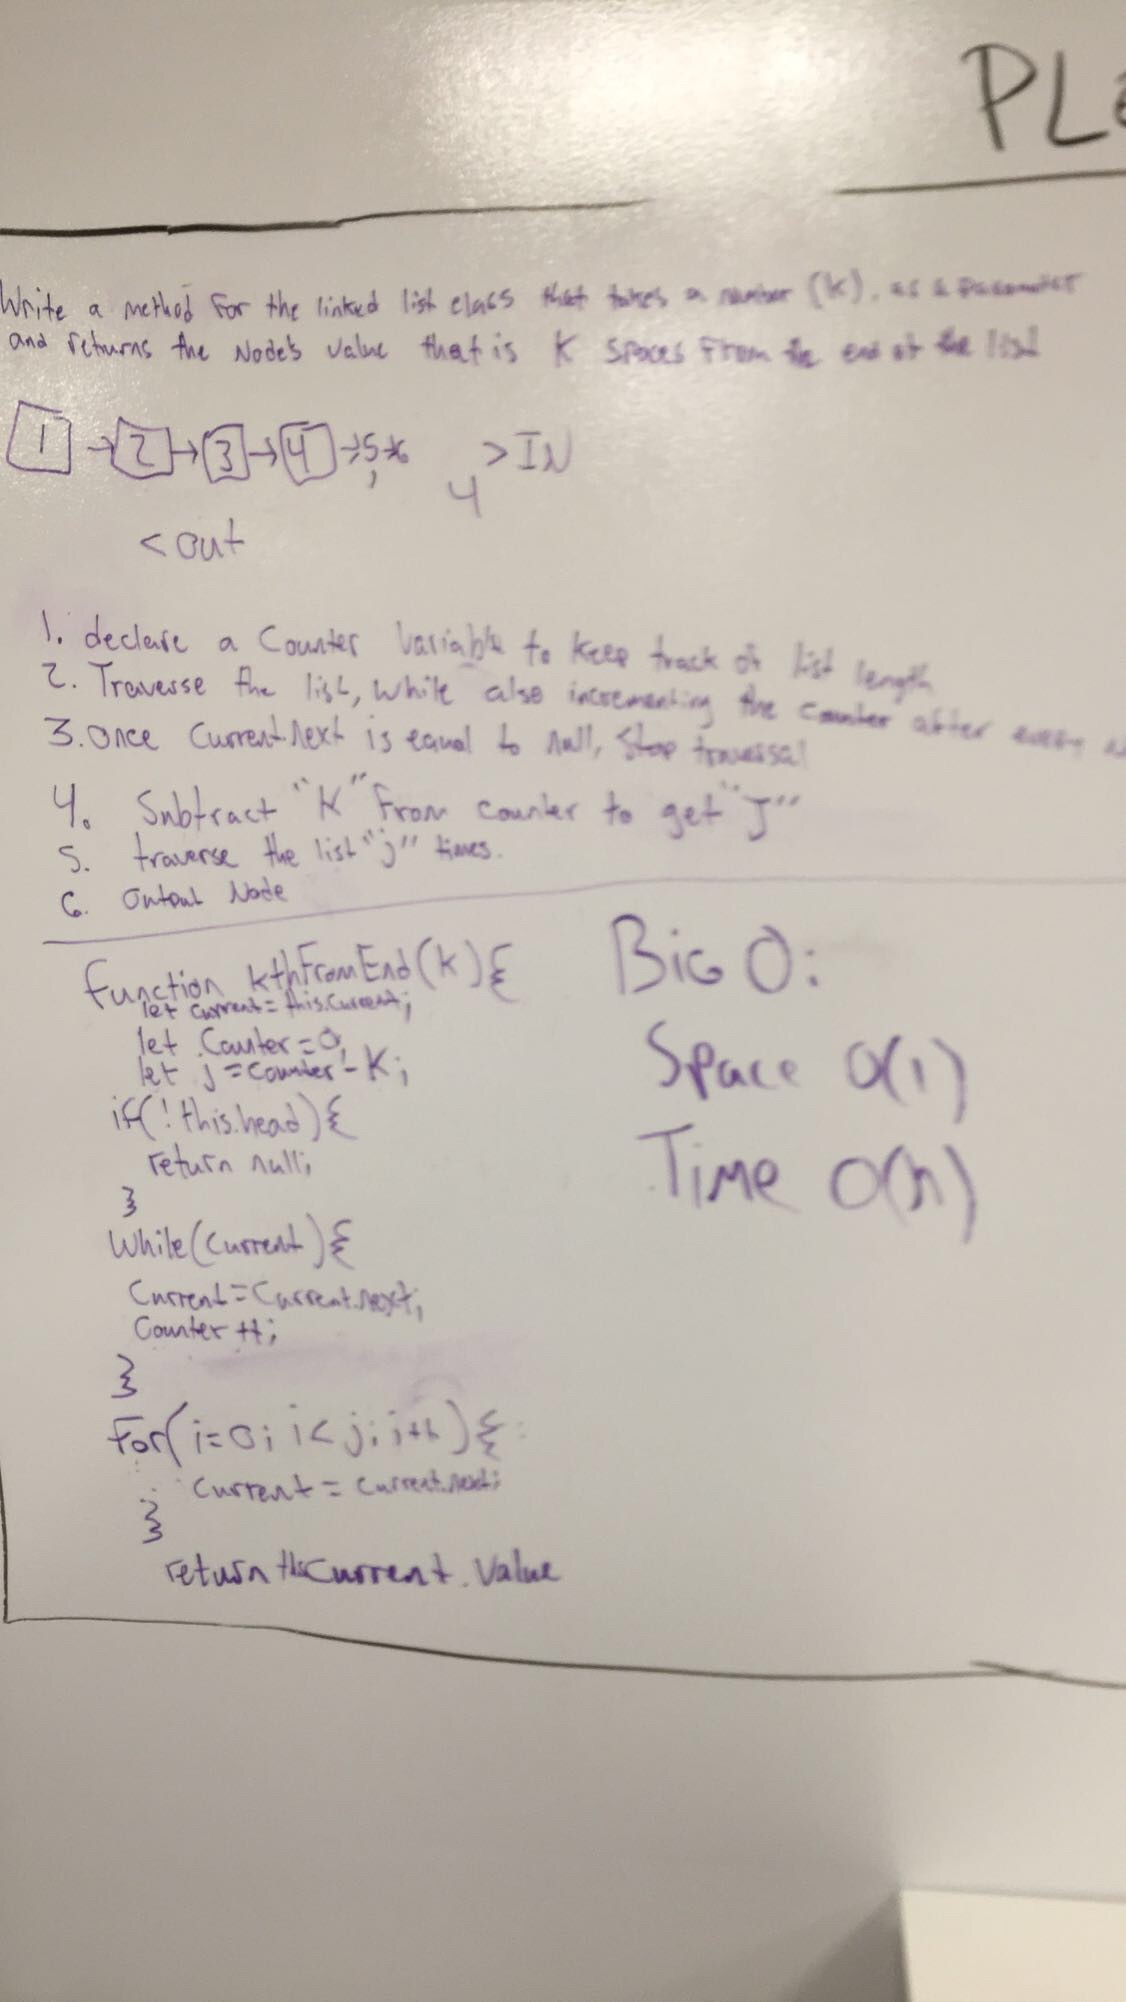 PLe
Write a method for the linked list class that takes a number (k), as a parameter
and returns the Node's value that is K spaces from the end of the list
1 → 2 → 3 → 4 → 5 → 6 > IN
4
< out
1. declare a Counter Variable to keep track of list length
2. Traverse the list, while also incrementing the counter after every
3. once Current.next is equal to null, stop traversal
4. Subtract "K" from counter to get "J"
5. traverse the list "j" times.
6. Output Node
function kthFromEnd(k){
let current = this.current;
let Counter = 0,
let j = counter - K;
if(!this.head){
return null;
}
While(Current){
Current = Current.next;
Counter ++;
}
For(i=0; i<j; i++){
Current = Current.next;
}
return this.Current.Value
Big O:
Space O(1)
Time O(n)